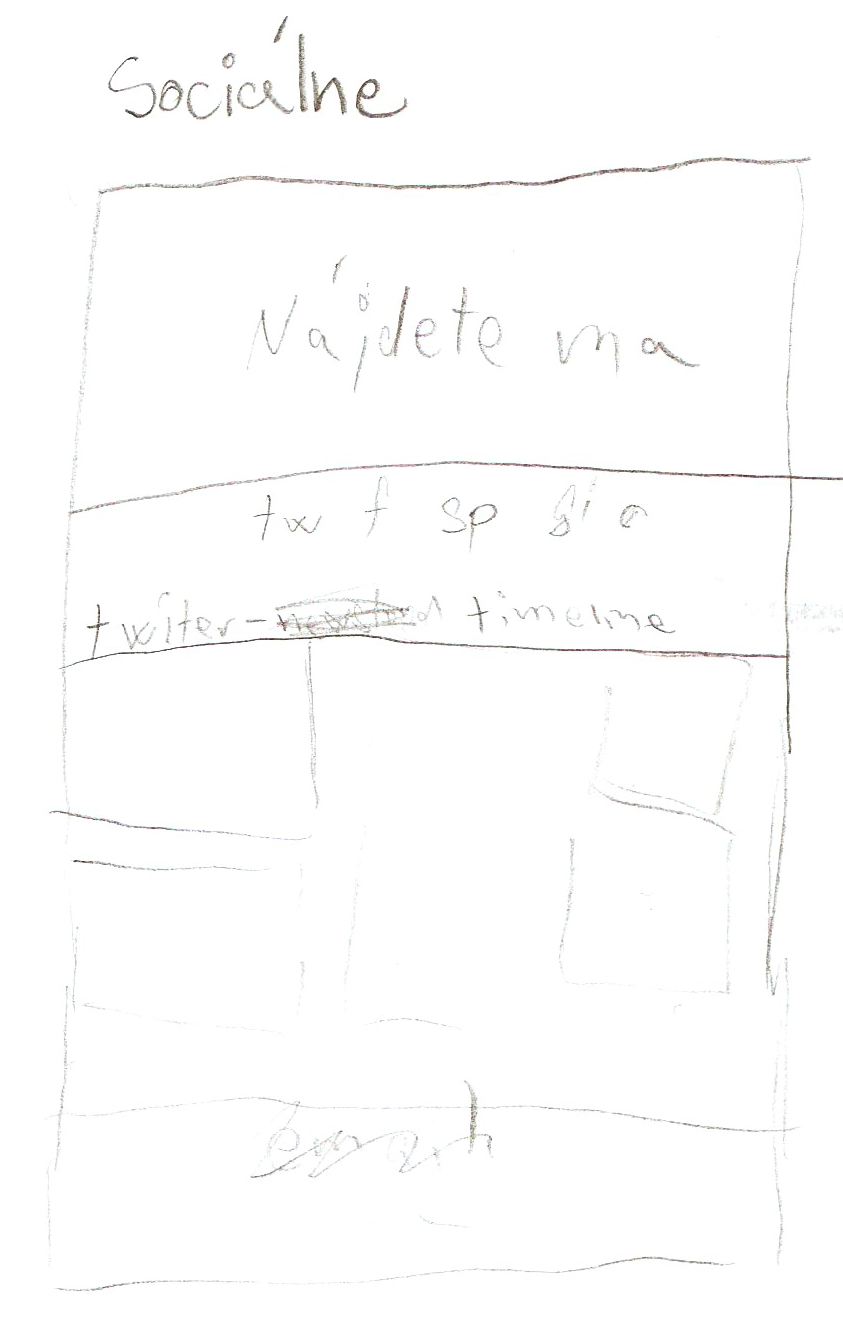 Sociálne
Nájdete ma
tw f sp
twiter- timeline